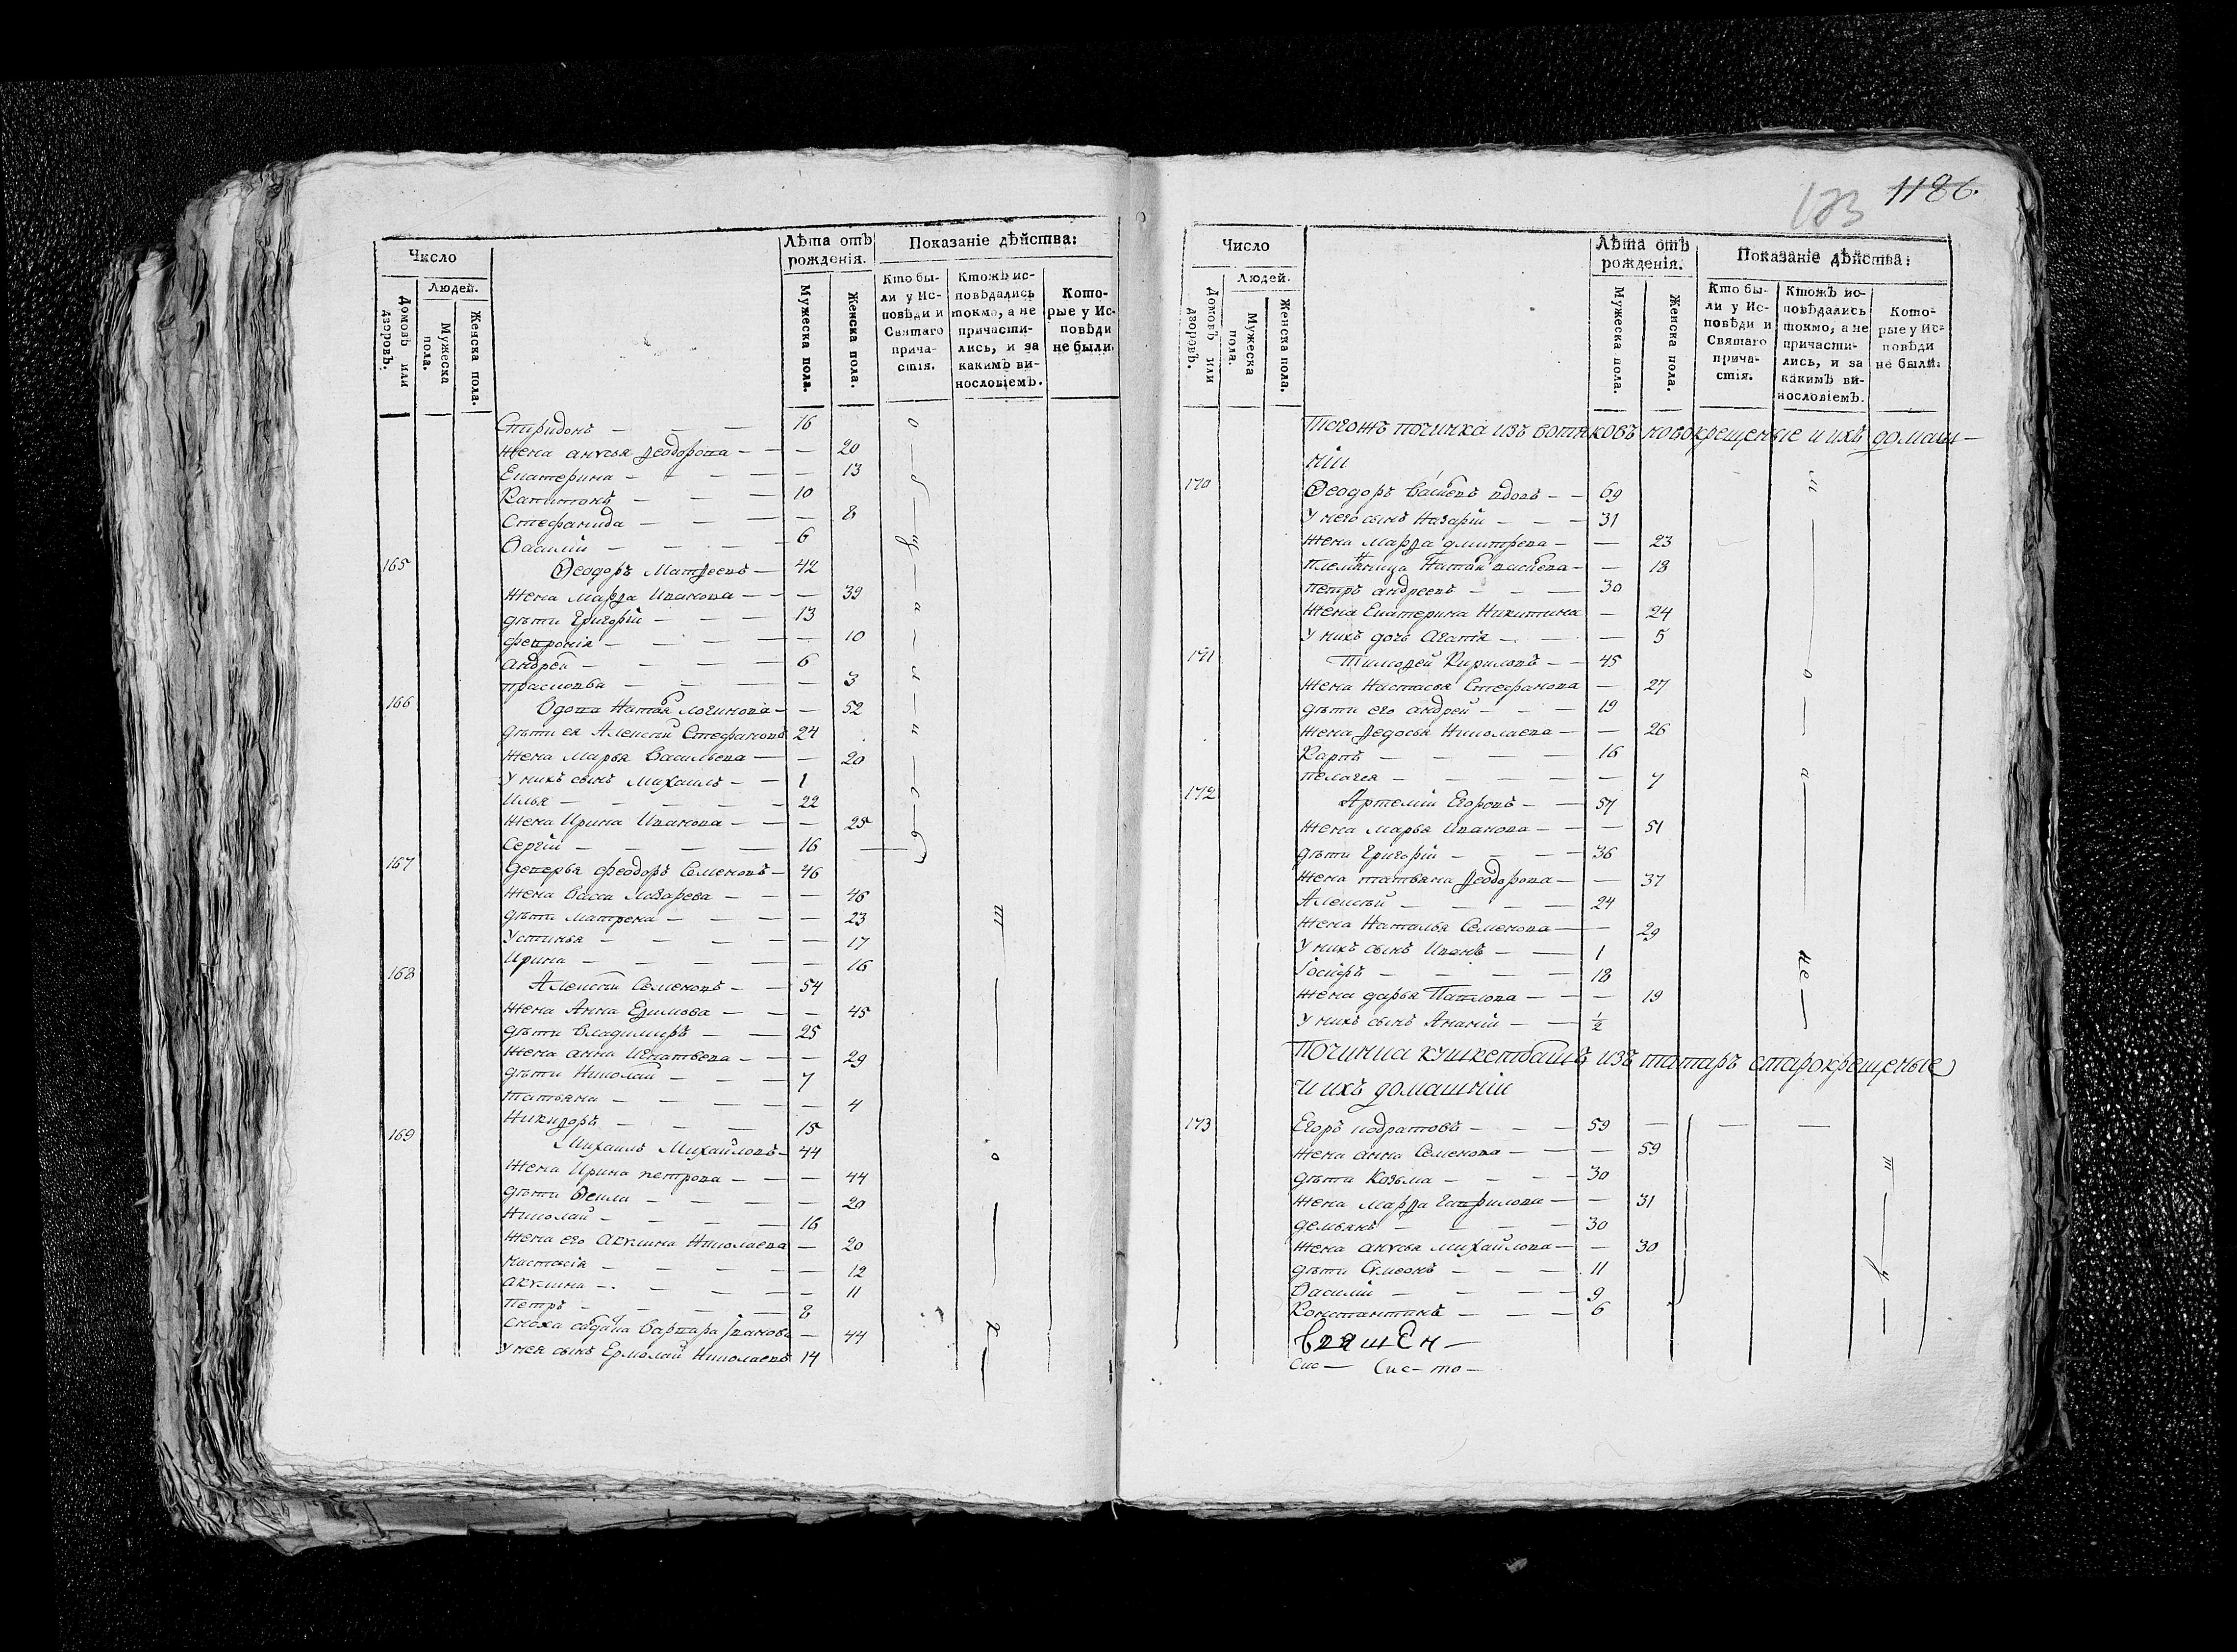 Число
Людей.
Домовъ или дворовъ.
Мужеска пола.
Женска пола.
Лѣта отъ рожденія.
Мужеска пола.
Женска пола.
Показаніе дѣйства:
Кто были у Исповѣди и Святаго причастія.
Ктожъ исповѣдались токмо, а не причастились, и за какимъ винословіемъ.
Которые у Исповѣди не были.
Спиридонъ — — — 16
Жена Деодорова — — — 20
Екатерина — — — 13
Капитонъ — — — 10
Стефанида — — — — 8
Василій — — — 6
165 Ѳеодоръ Матѳеевъ — 42
Жена Марѳа Иванова — — — 39
дѣти Григорій — — — 13
Феѵронія — — — — 10
андрей — — — — 6
прасковья — — — — 3
166 Вдова Логинова — — 52
дѣти ея Алексѣй Стефановъ 24
Жена Марья Васильева — — 20
У нихъ сынъ Михаилъ — — 1
Илья — — — — — 22
Жена Ирина Иванова — — — 25
Сергій — — — — 16
167 феодоръ Семеновъ — 46
Жена Васса — — — 46
дѣти матрена — — — — 23
Устинья — — — — — 17
Ирина — — — — — 16
168 Алексѣй Семеновъ — — 54
Жена Анна Ефимова — — — 45
дѣти Владимиръ — — 25
Жена анна Игнатьева — — — 29
дѣти Николай — — — 7
татьяна — — — — — 4
Никифоръ — — — 15
169 Михаилъ Михайловъ — 44
Жена Ирина петрова — — — 44
дѣти Ѳекла — — — — 20
Николай — — — — 16
Жена его акулина Николаева — 20
настасія — — — — — 12
акулина — — — — — 11
Петръ — — — — 8
сноха Варвара Іванова — 44
У нея сынъ Ермолай Николаевъ 14
123 1186.
Число
Людей.
Домовъ или дворовъ.
Мужеска пола.
Женска пола.
Лѣта отъ рожденія.
Мужеска пола.
Женска пола.
Показаніе дѣйства:
Кто были у Исповѣди и Святаго причастія.
Ктожъ исповѣдались токмо, а не причастились, и за какимъ винословіемъ.
Которые у Исповѣди не были.
Тогожъ починка изъ вотяковъ новокрещеные и ихъ домаш—
ніи
170 Ѳеодоръ вдовъ — — 69
У него сынъ Назарій — — — 31
Жена Марѳа дмитрева — — 23
Племянница — — 18
петръ андреевъ — — — 30
Жена Екатерина Никитина — 24
У нихъ дочь Агапія — — — 5
171 Тимоѳей Кириловъ — — 45
Жена Настасья Стефанова — 27
дѣти его андрей — — — 19
Жена Ѳедосья Николаева — — 26
Карпъ — — — — 16
пелагея — — — — — 7
172 Артемій Егоровъ — — 57
Жена Марья Иванова — — — 51
дѣти Григорій — — — 36
Жена татьяна Ѳеодорова — — 37
Алексѣй — — — — 24
Жена Наталья Семенова — — 29
У нихъ сынъ Иванъ — — 1
Іосифъ — — — — 18
Жена дарья Павлова — — — 19
У нихъ сынъ Ананій — — ½
не
Починка кушкетбашъ изъ татаръ старокрещеные
и ихъ домашніи
173 Егоръ — — — 59 — — —
Жена анна Семенова — — — 59
дѣти Козьма — — — — 30
Жена Марѳа Гаврилова — — 31
демьянъ — — — — 30
Жена Михайлова — — 30
дѣти Сѵмеонъ — — — 11
Василій — — — — 9
Константинъ — — — 6
Священ—